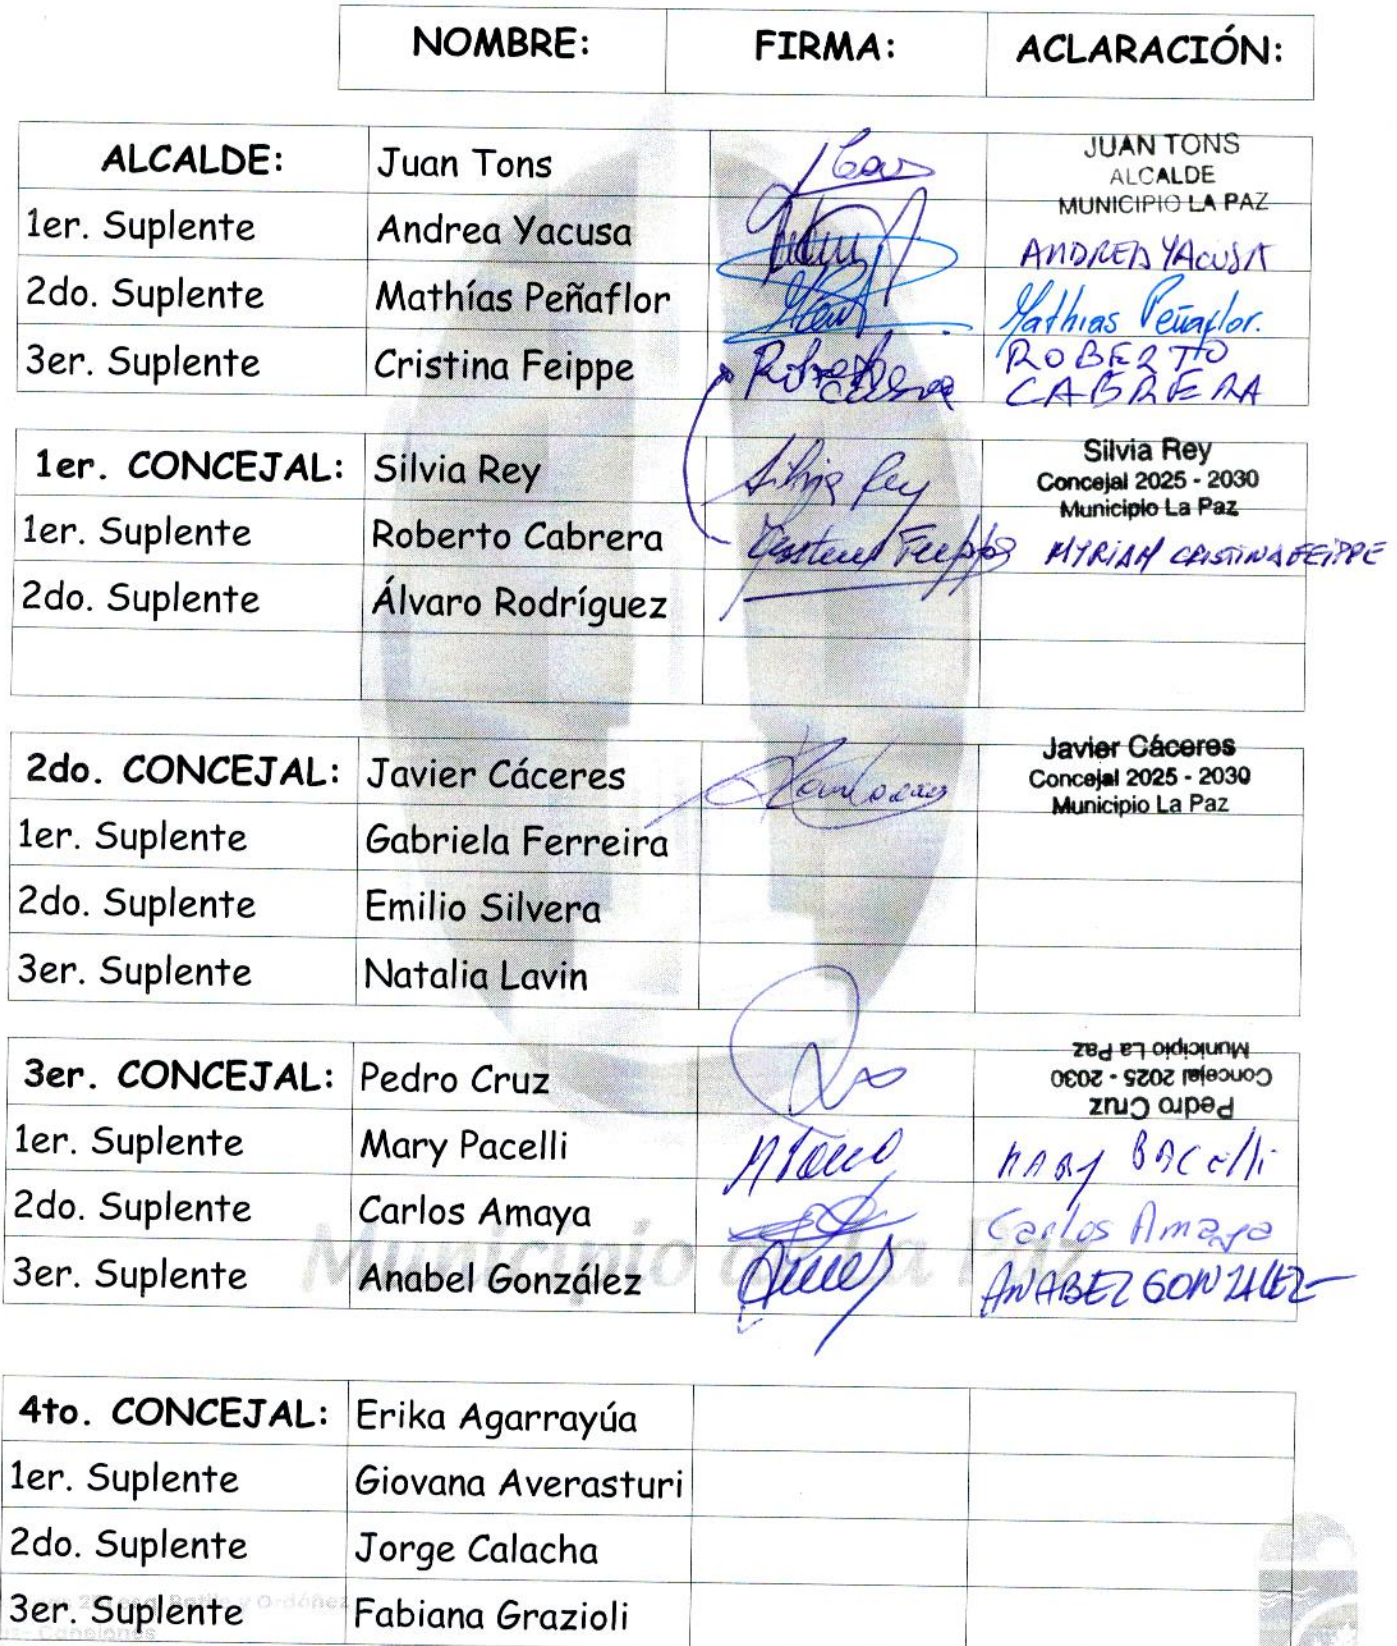 NOMBRE: FIRMA: ACLARACIÓN:
ALCALDE: Juan Tons JUAN TONS
ALCALDE
MUNICIPIO LA PAZ
1er. Suplente Andrea Yacusa ANDREA YACUSA
2do. Suplente Mathías Peñaflor Mathias Peñaflor.
3er. Suplente Cristina Feippe Roberto Cabrera ROBERTO
CABRERA
1er. CONCEJAL: Silvia Rey Silvia Rey Silvia Rey
Concejal 2025 - 2030
Municipio La Paz
1er. Suplente Roberto Cabrera Cristina Feippe MYRIAM CRISTINA FEIPPE
2do. Suplente Álvaro Rodríguez
2do. CONCEJAL: Javier Cáceres Javier Cáceres
Concejal 2025 - 2030
Municipio La Paz
1er. Suplente Gabriela Ferreira
2do. Suplente Emilio Silvera
3er. Suplente Natalia Lavin
3er. CONCEJAL: Pedro Cruz Pedro Cruz
Concejal 2025 - 2030
Municipio La Paz
1er. Suplente Mary Pacelli MARY BACelli
2do. Suplente Carlos Amaya Carlos Amaya
3er. Suplente Anabel González ANABEL GONZALEZ
Municipio de La Paz
4to. CONCEJAL: Erika Agarrayúa
1er. Suplente Giovana Averasturi
2do. Suplente Jorge Calacha
3er. Suplente Fabiana Grazioli
esq. Batlle y Ordóñez
Canelones